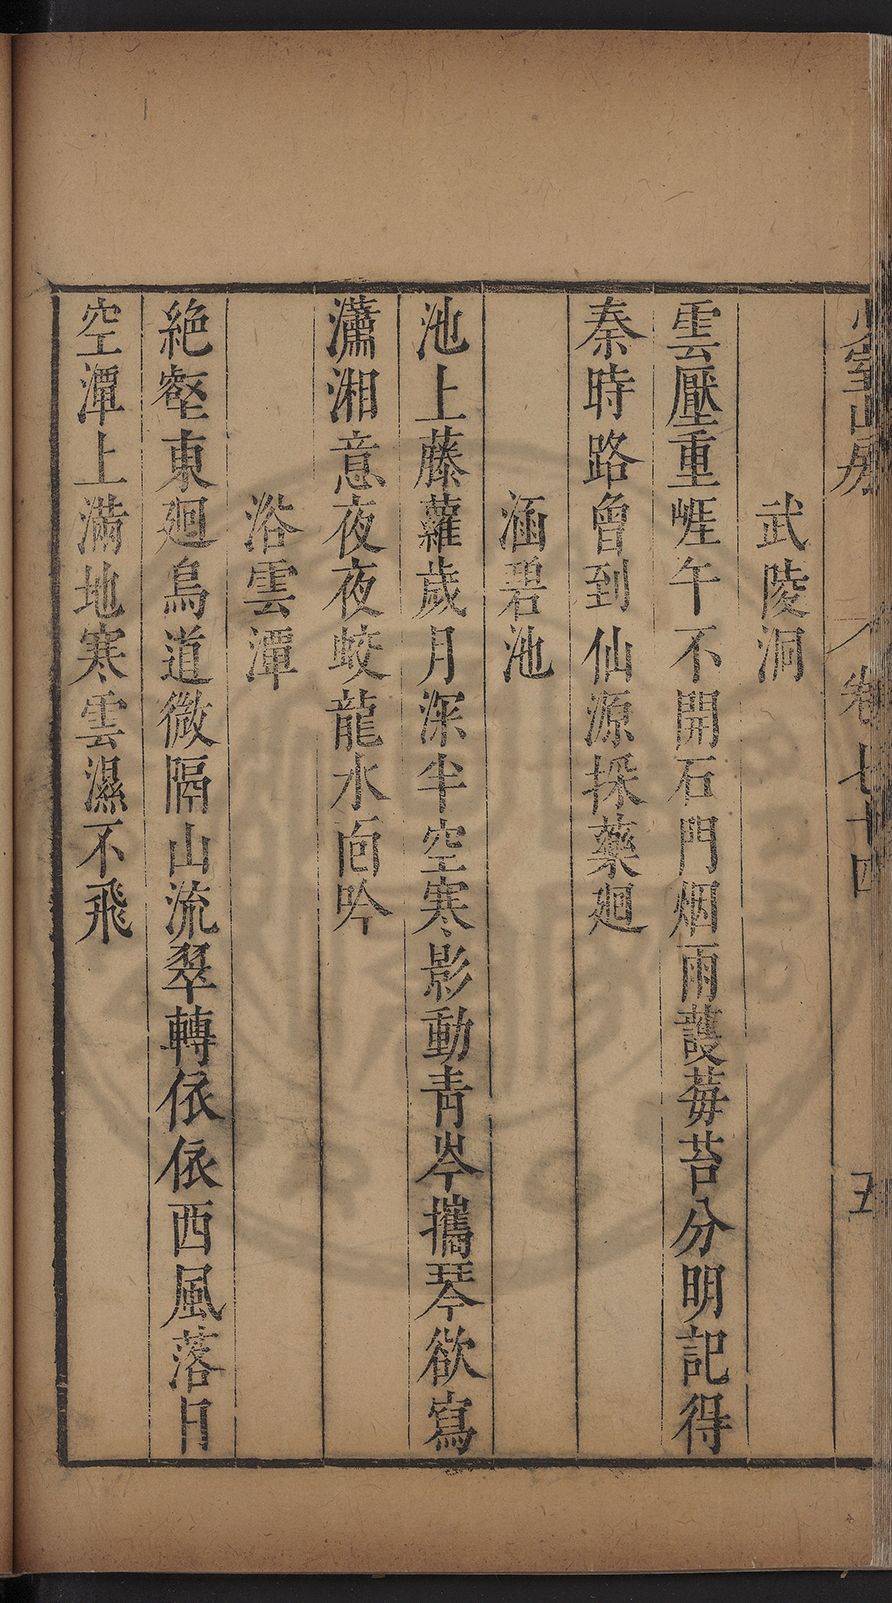 武陵洞
雲壓重崕午不開石門烟雨護莓苔分明記得
秦時路曾到仙源採藥廻
涵碧池
池上藤蘿歲月深半空寒影動青岑攜琴欲寫
瀟湘意夜夜蛟龍水面吟
浴雲潭
絶壑東廻鳥道微隔山流翠轉依依西風落日
空潭上滿地寒雲濕不飛
山房
卷七十四
五